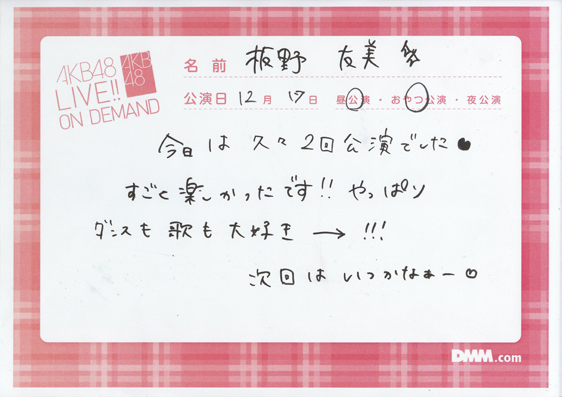 AKB48
LIVE!!
ON DEMAND
AKB
48
名前 板野 友美
公演日 12月17日 昼公演・おやつ公演・夜公演
今日は久々2回公演でした
すごく楽しかったです!! やっぱり
ダンスも歌も大好き→!!!
次回はいつかなぁー
DMM.com